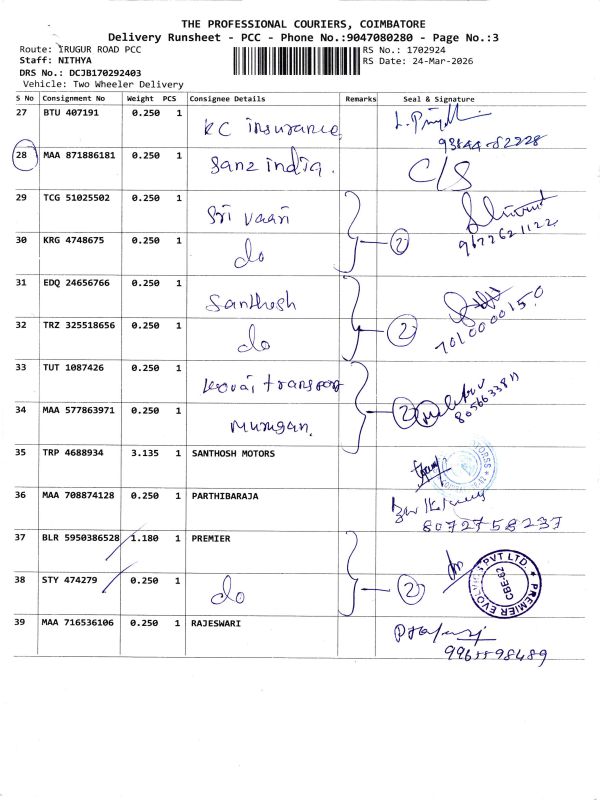 THE PROFESSIONAL COURIERS, COIMBATORE
Delivery Runsheet - PCC - Phone No.:9047080280 - Page No.:3
Route: IRUGUR ROAD PCC
RS No.: 1702924
Staff: NITHYA
RS Date: 24-Mar-2026
DRS No.: DCJB170292403
Vehicle: Two Wheeler Delivery
S No Consignment No Weight PCS Consignee Details Remarks Seal & Signature
27 BTU 407191 0.250 1 KC insurance
93844-82228
28 MAA 871886181 0.250 1 Sanz india. C/S
29 TCG 51025502 0.250 1 Sri vaari
9677621122
30 KRG 4748675 0.250 1 do 2
31 EDQ 24656766 0.250 1 Santhosh
32 TRZ 325518656 0.250 1 do 2
33 TUT 1087426 0.250 1 Kovai transport
34 MAA 577863971 0.250 1 Murugan. 2
35 TRP 4688934 3.135 1 SANTHOSH MOTORS
36 MAA 708874128 0.250 1 PARTHIBARAJA
8072758237
37 BLR 5950386528 1.180 1 PREMIER
38 STY 474279 0.250 1 do 2
PREMIER EVOLVICS PVT LTD.
CBE-62
39 MAA 716536106 0.250 1 RAJESWARI
9965598489